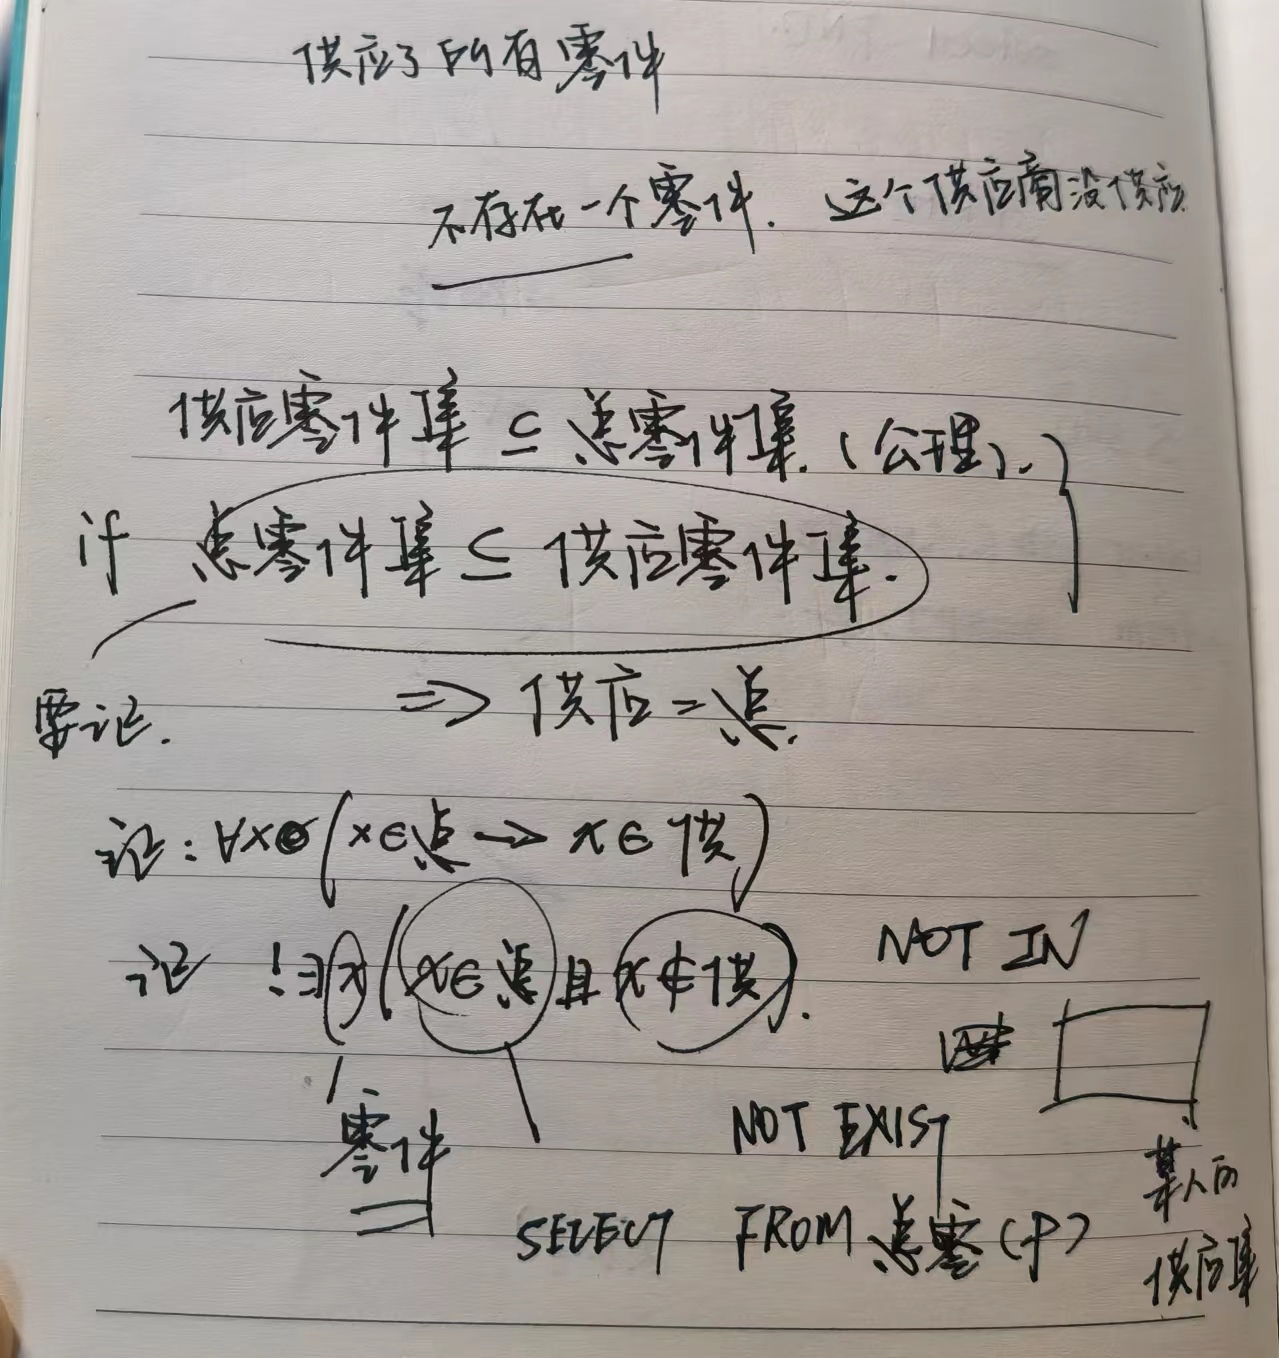 供应了所有零件
不存在一个零件. 这个供应商没供应
供应零件集 ⊆ 总零件集.（公理）.
if 总零件集 ⊆ 供应零件集.
要证.
=> 供应=总.
证: ∀x(x∈总 → x∈供)
证 !∃x(x∈总 且 x∉供).
NOT IN
零件
NOT EXIST
某人的
供应集
SELECT FROM 总零(P)